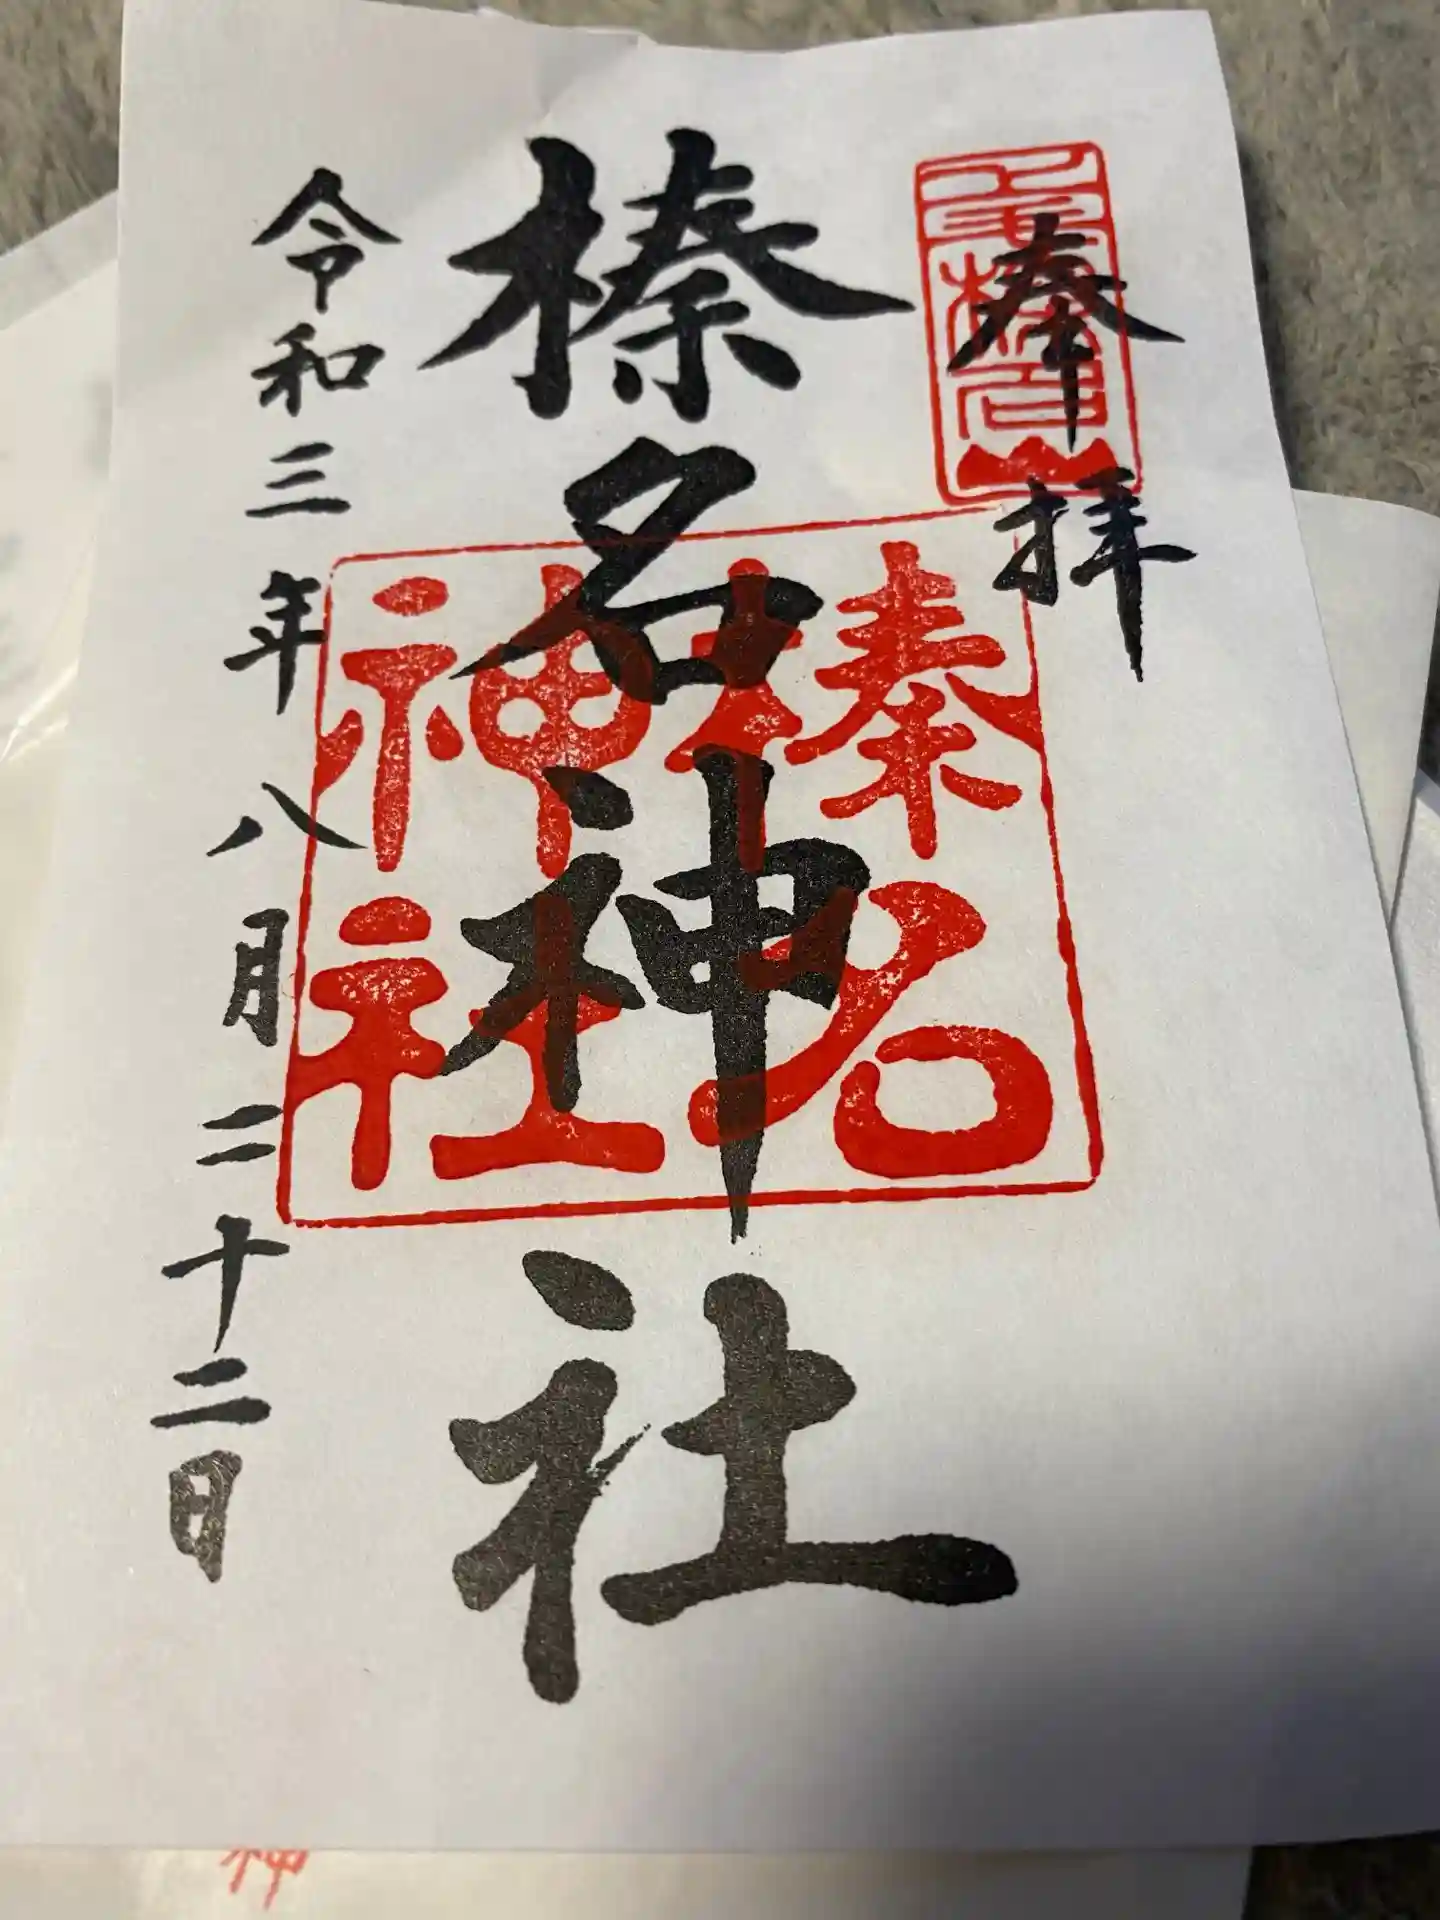 奉拝
榛名山
榛名神社
榛名神社
令和三年八月二十二日
神